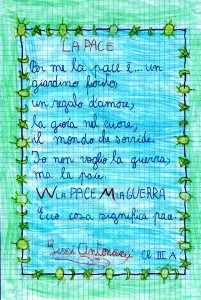 LA PACE
Per me la pace è... un
giardino fiorito,
un regalo d'amore,
la gioia nel cuore,
il mondo che sorride.
Io non voglio la guerra,
ma la pace.
W LA PACE M LA GUERRA
Ecco cosa significa pace.
Cl III A